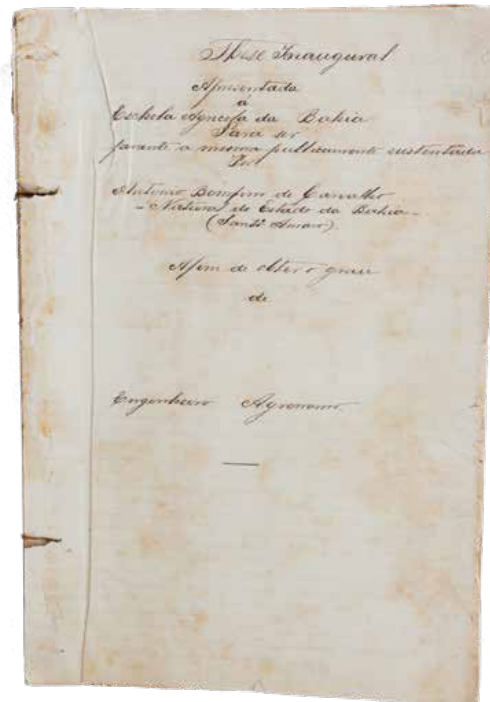 These Inaugural
Apresentada
á
Eschola Agricola da Bahia
Para ser
perante a mesma publicamente sustentada
Por
Antonio Bomfim de Carvalho
- Natural do Estado da Bahia -
(Santo Amaro)
Afim de obter o grau
de
Engenheiro Agronomo